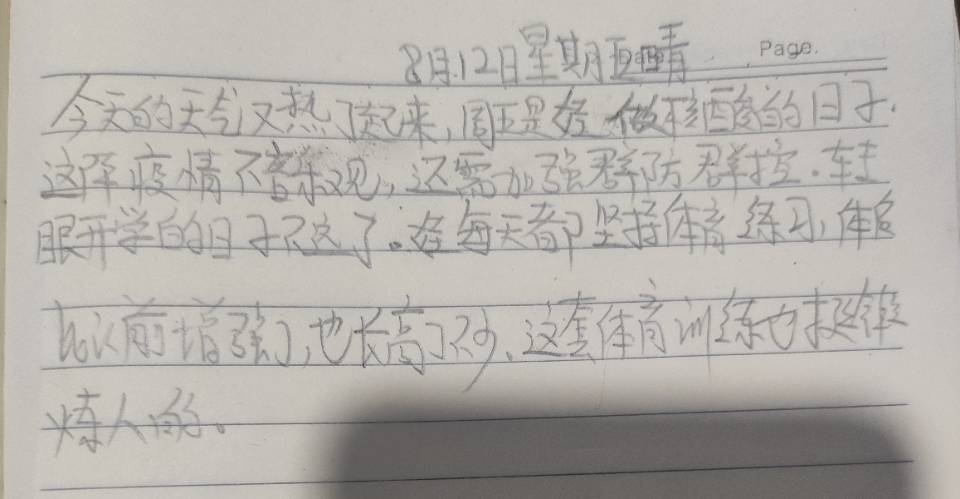 8月12日星期五晴 Page.
今天的天气又热了起来,周五是孩做核酸的日子.
这阵疫情不容乐观,还需加强群防群控.转
眼开学的日子不远了。孩每天都坚持体育练习,体能
比以前增强了,也长高了不少、这套体育训练也挺锻
炼人的。